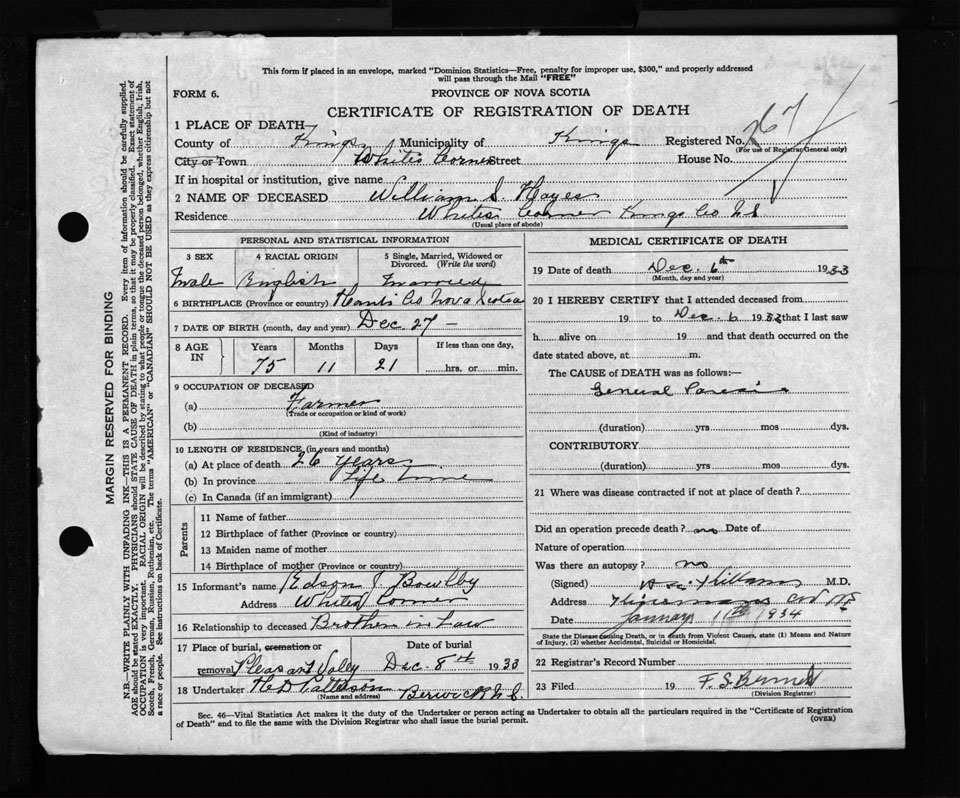 This form if placed in an envelope, marked "Dominion Statistics—Free, penalty for improper use, $300," and properly addressed
will pass through the Mail "FREE"
FORM 6. PROVINCE OF NOVA SCOTIA
CERTIFICATE OF REGISTRATION OF DEATH
1 PLACE OF DEATH
County of Kings Municipality of Kings Registered No. 267
(For use of Registrar General only)
City or Town Whites Corner Street House No.
If in hospital or institution, give name
2 NAME OF DECEASED William S. Hayes
Residence Whites Corner Kings Co N S
(Usual place of abode)
PERSONAL AND STATISTICAL INFORMATION
3 SEX 4 RACIAL ORIGIN 5 Single, Married, Widowed or
Divorced. (Write the word)
Male English Married
6 BIRTHPLACE (Province or country) Hants Co Nova Scotia
7 DATE OF BIRTH (month, day and year) Dec 27 —
8 AGE IN Years Months Days If less than one day,
75 11 21 hrs. or min.
9 OCCUPATION OF DECEASED
(a) Farmer
(Trade or occupation or kind of work)
(b)
(Kind of industry)
10 LENGTH OF RESIDENCE (in years and months)
(a) At place of death 26 years
(b) In province Life time
(c) In Canada (if an immigrant)
Parents
11 Name of father
12 Birthplace of father (Province or country)
13 Maiden name of mother
14 Birthplace of mother (Province or country)
15 Informant's name Edson J. Bowlby
Address Whites Corner
16 Relationship to deceased Brother in Law
17 Place of burial, cremation or Date of burial
removal Pleasant Valley Dec. 8th 1933
18 Undertaker H D Pattison Berwick N.S.
(Name and address)
MEDICAL CERTIFICATE OF DEATH
19 Date of death Dec. 6th 1933
(Month, day and year)
20 I HEREBY CERTIFY that I attended deceased from
19 to Dec. 6 1933 that I last saw
h alive on 19 and that death occurred on the
date stated above, at m.
The CAUSE of DEATH was as follows:—
General Paresis
(duration) yrs mos dys.
CONTRIBUTORY
(duration) yrs. mos. dys.
21 Where was disease contracted if not at place of death?
Did an operation precede death? no Date of
Nature of operation
Was there an autopsy? no
(Signed) M.D.
Address
Date January 11th 1934
State the Disease causing Death, or in death from Violent Causes, state (1) Means and Nature
of Injury, (2) whether Accidental, Suicidal or Homicidal.
22 Registrar's Record Number
23 Filed 19 F. S.
(Division Registrar)
Sec. 46—Vital Statistics Act makes it the duty of the Undertaker or person acting as Undertaker to obtain all the particulars required in the "Certificate of Registration
of Death" and to file the same with the Division Registrar who shall issue the burial permit. (OVER)
MARGIN RESERVED FOR BINDING
N.B.—WRITE PLAINLY WITH UNFADING INK—THIS IS A PERMANENT RECORD. Every item of information should be carefully supplied.
AGE should be stated EXACTLY. PHYSICIANS should STATE CAUSE OF DEATH in plain terms, so that it may be properly classified. Exact statement of
OCCUPATION is very important. RACIAL ORIGIN will be described by stating to what people or tongue the deceased person belonged, whether English, Irish,
Scotch, French, German, Russian, Ruthenian, etc. The terms "AMERICAN" or "CANADIAN" SHOULD NOT BE USED as they express citizenship but not
a race or people. See instructions on back of Certificate.